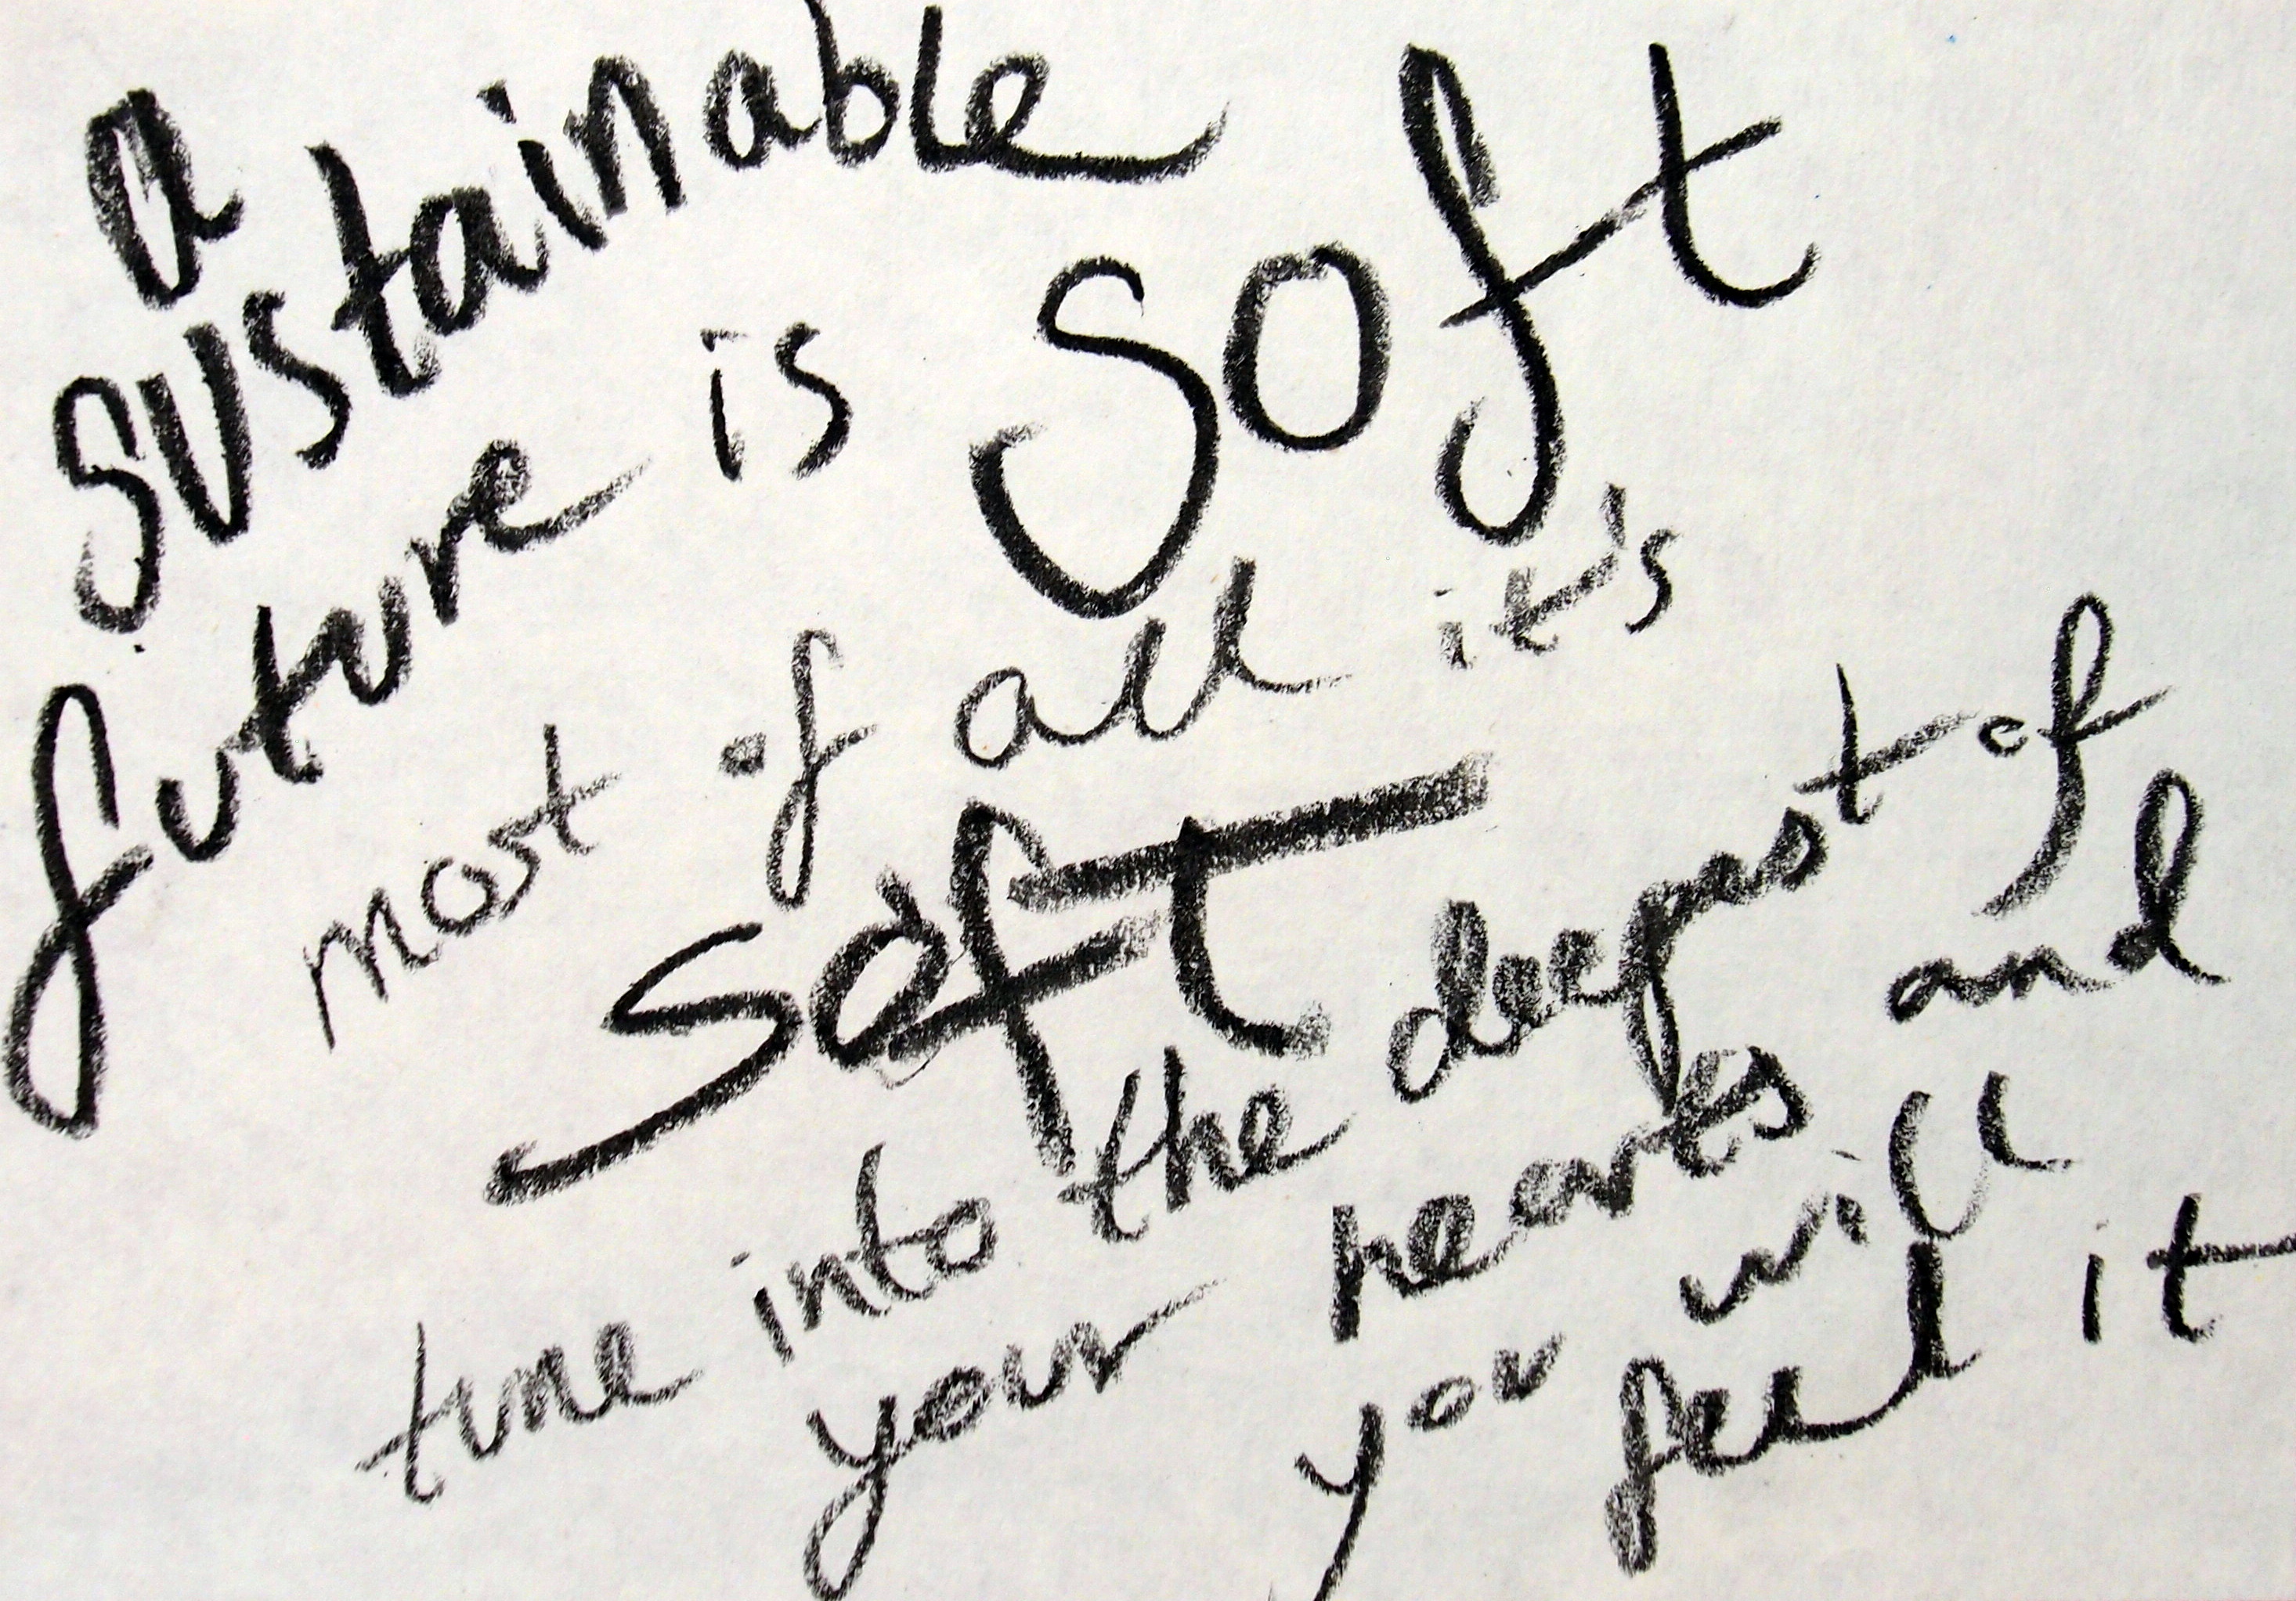 a
sustainable
future is soft
most of all it's
soft
tune into the deepest of
your hearts and
you will
feel it